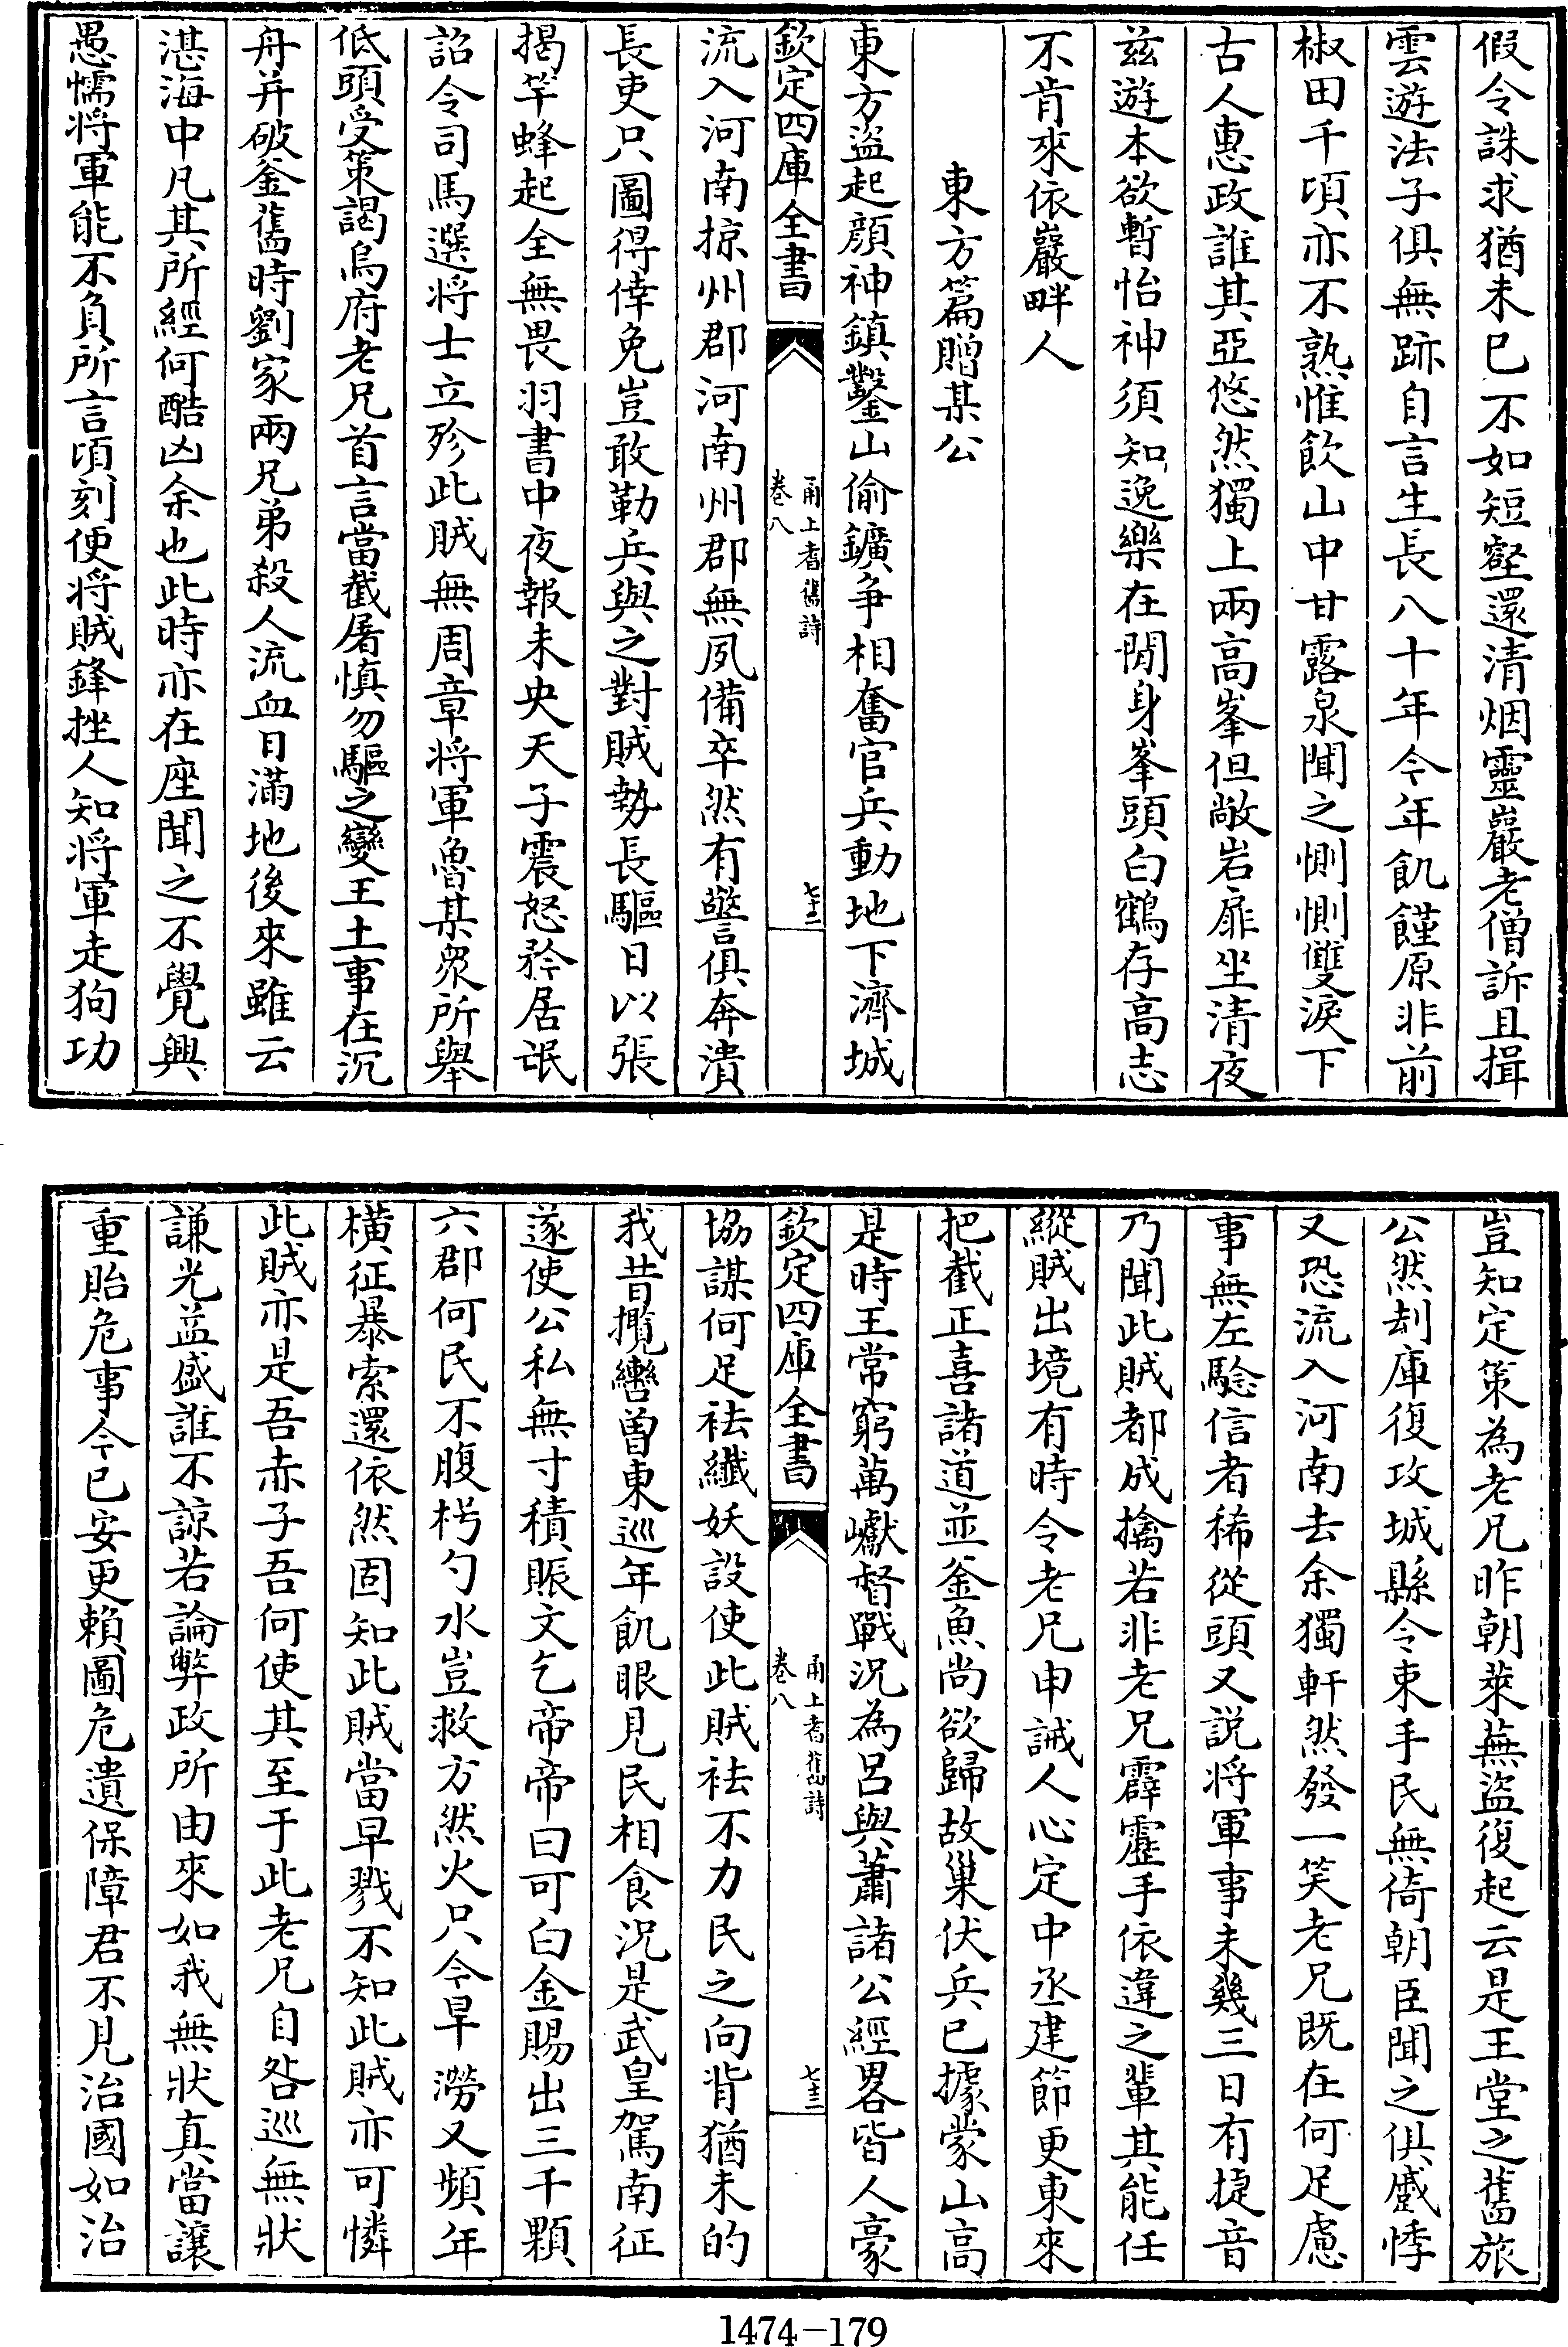 假令誅求猶未已不如短壑還清烟靈巖老僧訴且揖
雲遊法子俱無跡自言生長八十年今年飢饉原非前
椒田千頃亦不熟惟飲山中甘露泉聞之惻惻雙淚下
古人惠政誰其亞悠然獨上兩高峯但敞岩扉坐清夜
兹遊本欲暫怡神須知逸樂在閒身峯頭白鶴存高志
不肯來依巖畔人
東方篇贈某公
東方盜起顔神鎮鑿山偷鑛争相奮官兵動地下濟城
欽定四庫全書
甬上耆舊詩
卷八
七十二
流入河南掠州郡河南州郡無夙備卒然有警俱奔潰
長吏只圖得倖免豈敢勒兵與之對賊勢長驅日以張
揭竿蜂起全無畏羽書中夜報未央天子震怒矜居氓
詔令司馬選将士立殄此賊無周章将軍魯某衆所舉
低頭受策謁烏府老兄首言當截屠慎勿驅之變王土事在沉
舟并破釜舊時劉家兩兄弟殺人流血日滿地後來雖云
湛海中凡其所經何酷凶余也此時亦在座聞之不覺興
愚懦将軍能不負所言頃刻便将賊鋒挫人知将軍走狗功
豈知定策為老兄昨朝萊蕪盜復起云是王堂之舊旅
公然刦庫復攻城縣令束手民無倚朝臣聞之俱慼悸
又恐流入河南去余獨軒然發一笑老兄既在何足慮
事無左騐信者稀從頭又説将軍事事未幾三日有捷音
乃聞此賊都成擒若非老兄霹靂手依違之輩其能任
縱賊出境有時令老兄申誡人心定中丞建節更東來
把截正喜諸道並釜魚尚欲歸故巢伏兵已據蒙山高
是時王常窮萬巘督戰況為呂與蕭諸公經畧皆人豪
欽定四庫全書
甬上耆舊詩
卷八
七十三
協謀何足祛纖妖設使此賊祛不力民之向背猶未的
我昔攬轡曽東巡年飢眼見民相食況是武皇駕南征
遂使公私無寸積賑文乞帝帝曰可白金賜出三千顆
六郡何民不腹枵勺水豈救方然火只今旱澇又頻年
横征暴索還依然固知此賊當早戮不知此賊亦可憐
此賊亦是吾赤子吾何使其至于此老兄自咎巡無狀
謙光益盛誰不諒若論弊政所由來如我無狀真當讓
重貽危事今已安更賴圖危遺保障君不見治國如治
1474-179